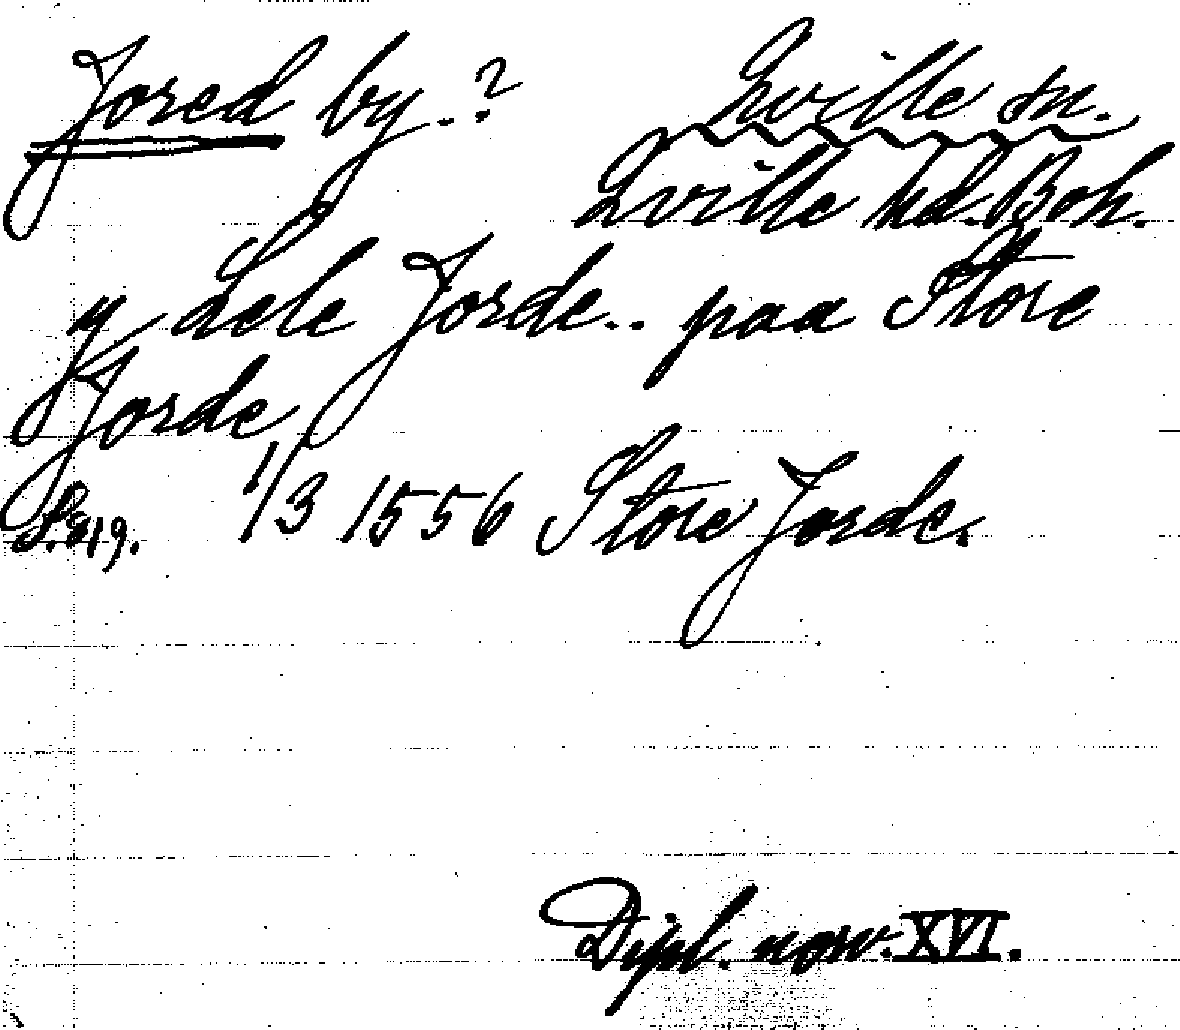 Jored by.? Qville sn.
Qville hd. Boh.
y dele Jorde.. paa Store
Jorde
S. 819. 1/3 1556 Store Jorde.
Dipl. norv. XVI.